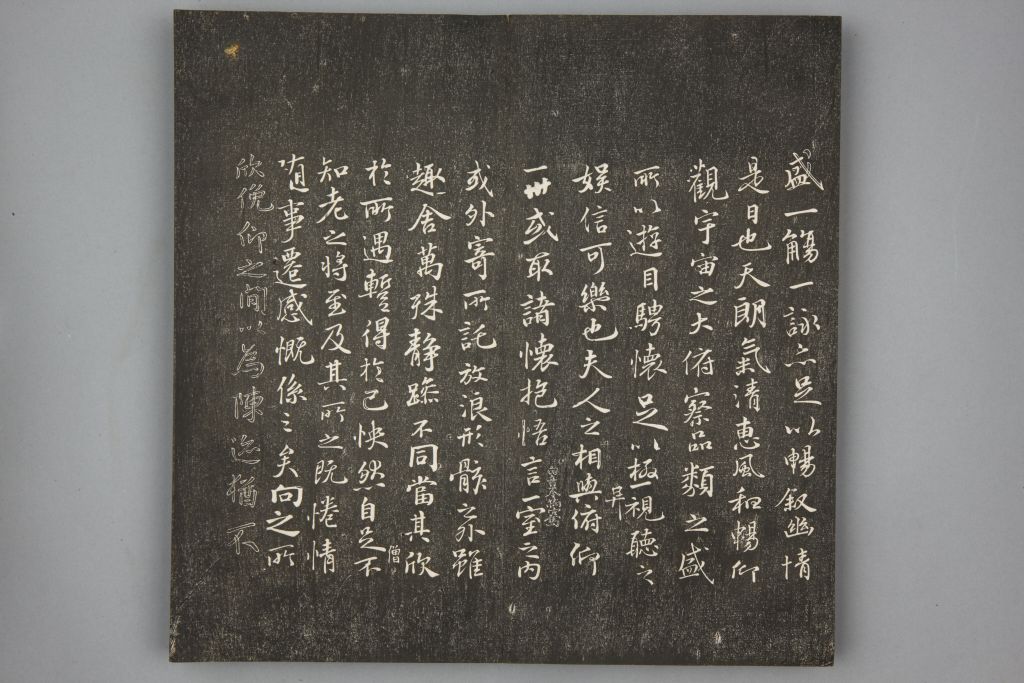 盛一觴一詠亦足以暢叙幽情
是日也天朗氣清惠風和暢仰
觀宇宙之大俯察品類之盛
所以遊目騁懷足以極視聽之
异
娛信可樂也夫人之相與俯仰
一世或取諸懷抱悟言一室之内
或外寄所託放浪形骸之外雖
趣舍萬殊静躁不同當其欣
僧
於所遇蹔得於己怏然自足不
知老之將至及其所之既惓情
隨事遷感慨係之矣向之所
欣俛仰之間以為陳迹猶不